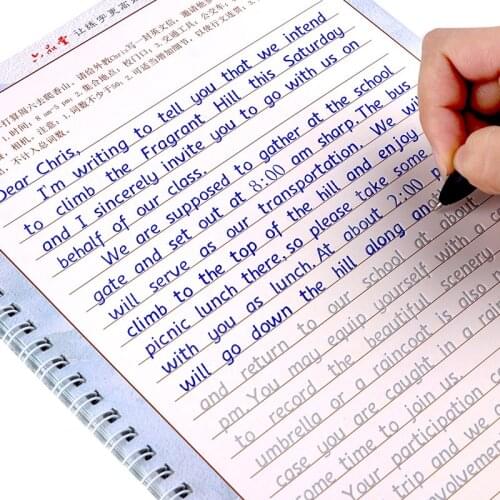 六品堂 让练字更高
打算周六去爬香山,请给外教Chris写一封英文信,邀请他
1.时间:8 am-5 pm,2.集合地点:校门口,3.交通工具:公交车,
相机,注意:1.词数不少于50,2.可适当增加细节,以使行文连贯,3.
不计入总词数。
Dear Chris,
I'm writing to tell you that we intend
to climb the Fragrant Hill this Saturday
and I sincerely invite you to go with us on
behalf of our class.
We are supposed to gather at the school
gate and set out at 8:00 am sharp. The bus
will serve as our transportation. We wi
climb to the top of the hill and enjoy
picnic lunch there, so please take some
with you as lunch. At about 2:00 p
will go down the hill along an
and return to our school at about
pm. You may equip yourself with a
to record the beautiful scenery
umbrella or a raincoat is also
case you are caught in a ra
some time to join us.
Your participation c
trip and we
volvemen